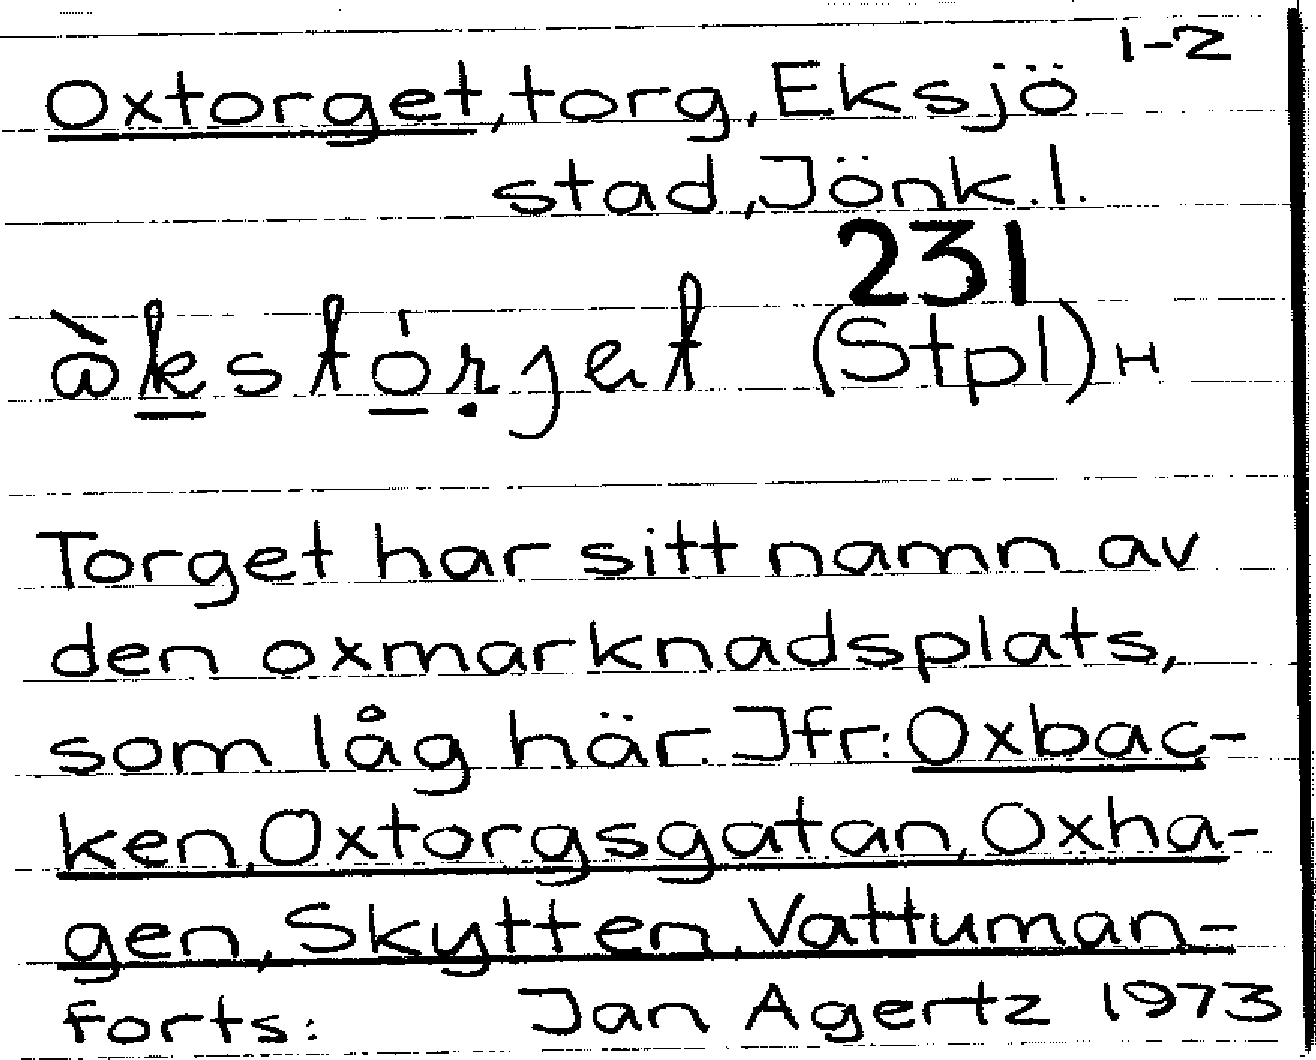 1-2
Oxtorget, torg, Eksjö
stad, Jönk.l.
231
(Stpl) H
Torget har sitt namn av
den oxmarknadsplats,
som låg här. Jfr: Oxbac-
ken, Oxtorgsgatan, Oxha-
gen, Skytten, Vattuman-
forts: Jan Agertz 1973